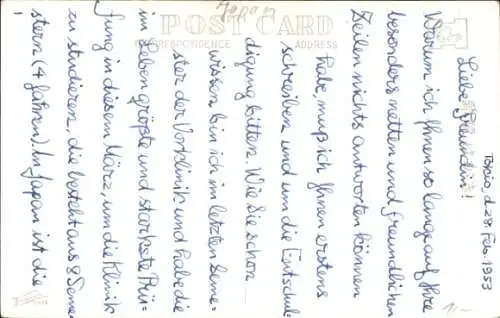 Japan
POST CARD
CORRESPONDENCE
ADDRESS
Tokio, d. 28. Feb. 1953
Liebe Freundin!
Warum ich Ihnen so lange auf Ihre
besonders netten und freundlichen
Zeilen nichts antworten können
habe, muß ich Ihnen erstens
schreiben und um die Entschul-
digung bitten. Wie Sie schon
wissen bin ich im letzten Seme-
ster der Vorklinik und habe die
im Leben größte und starkste Prü-
fung in diesem März, um die Klinik
zu studieren, die besteht aus 8 Seme-
stern (4 Jahren). In Japan ist die
1.-